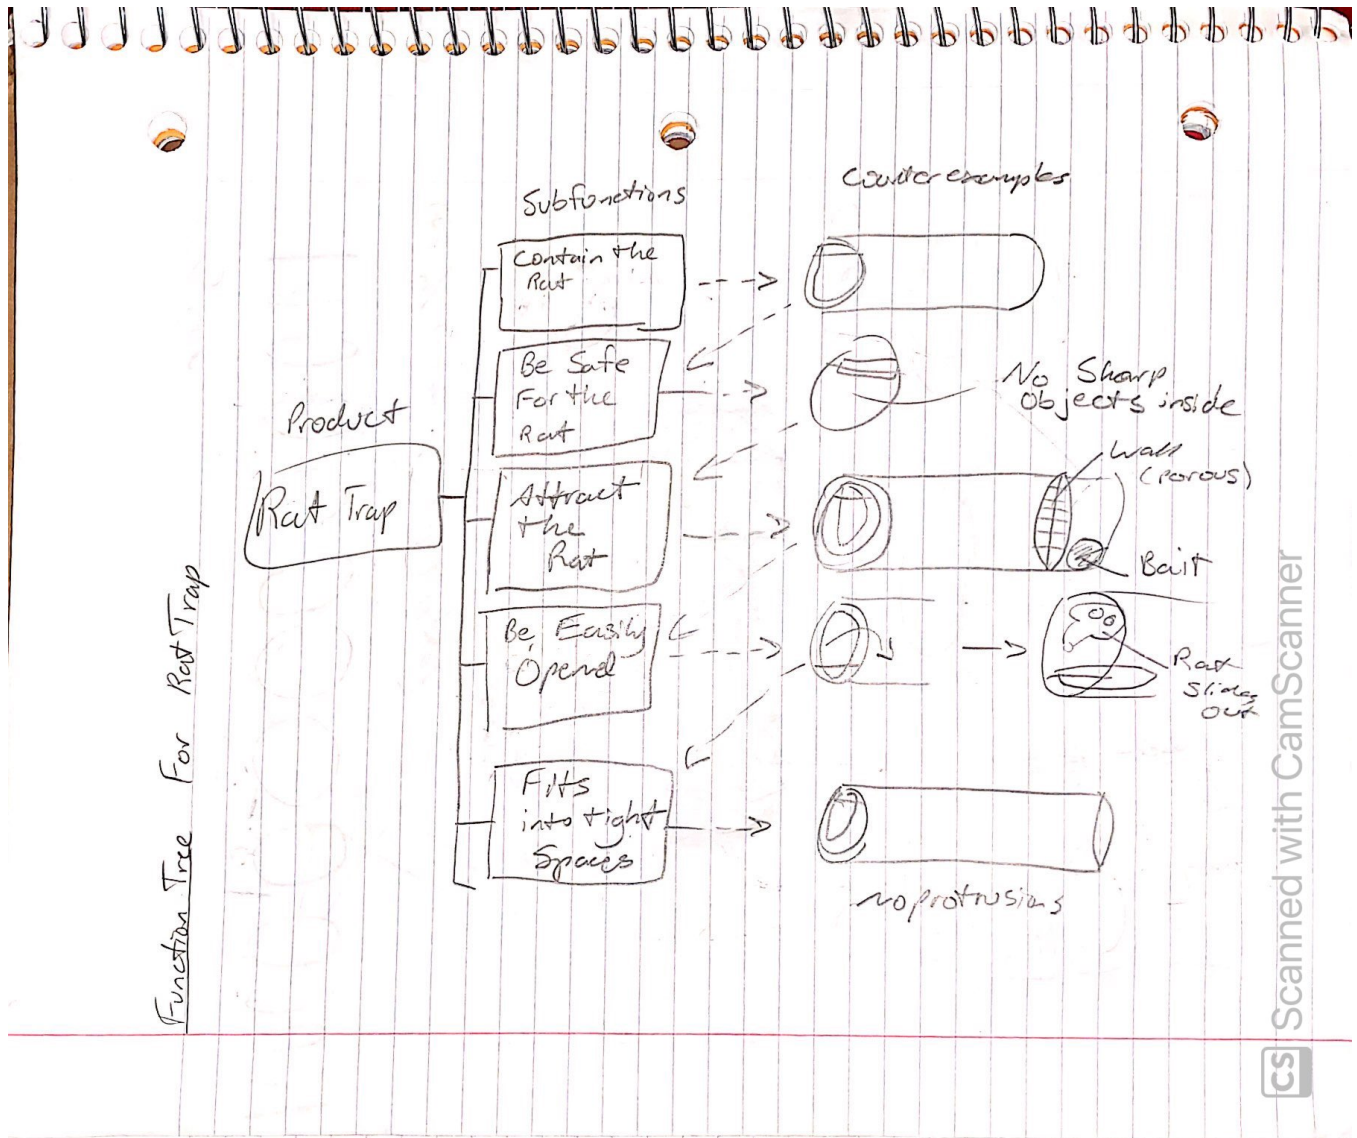 Function Tree For Rat Trap
Product
Rat Trap
Subfunctions
Contain the
Rat
Be Safe
For the
Rat
Attract
the
Rat
Be Easily
Opened
Fits
into tight
Spaces
Counter examples
No Sharp
Objects inside
Wall
(porous)
Bait
Rat
Slides
Out
No protrusions
CS Scanned with CamScanner